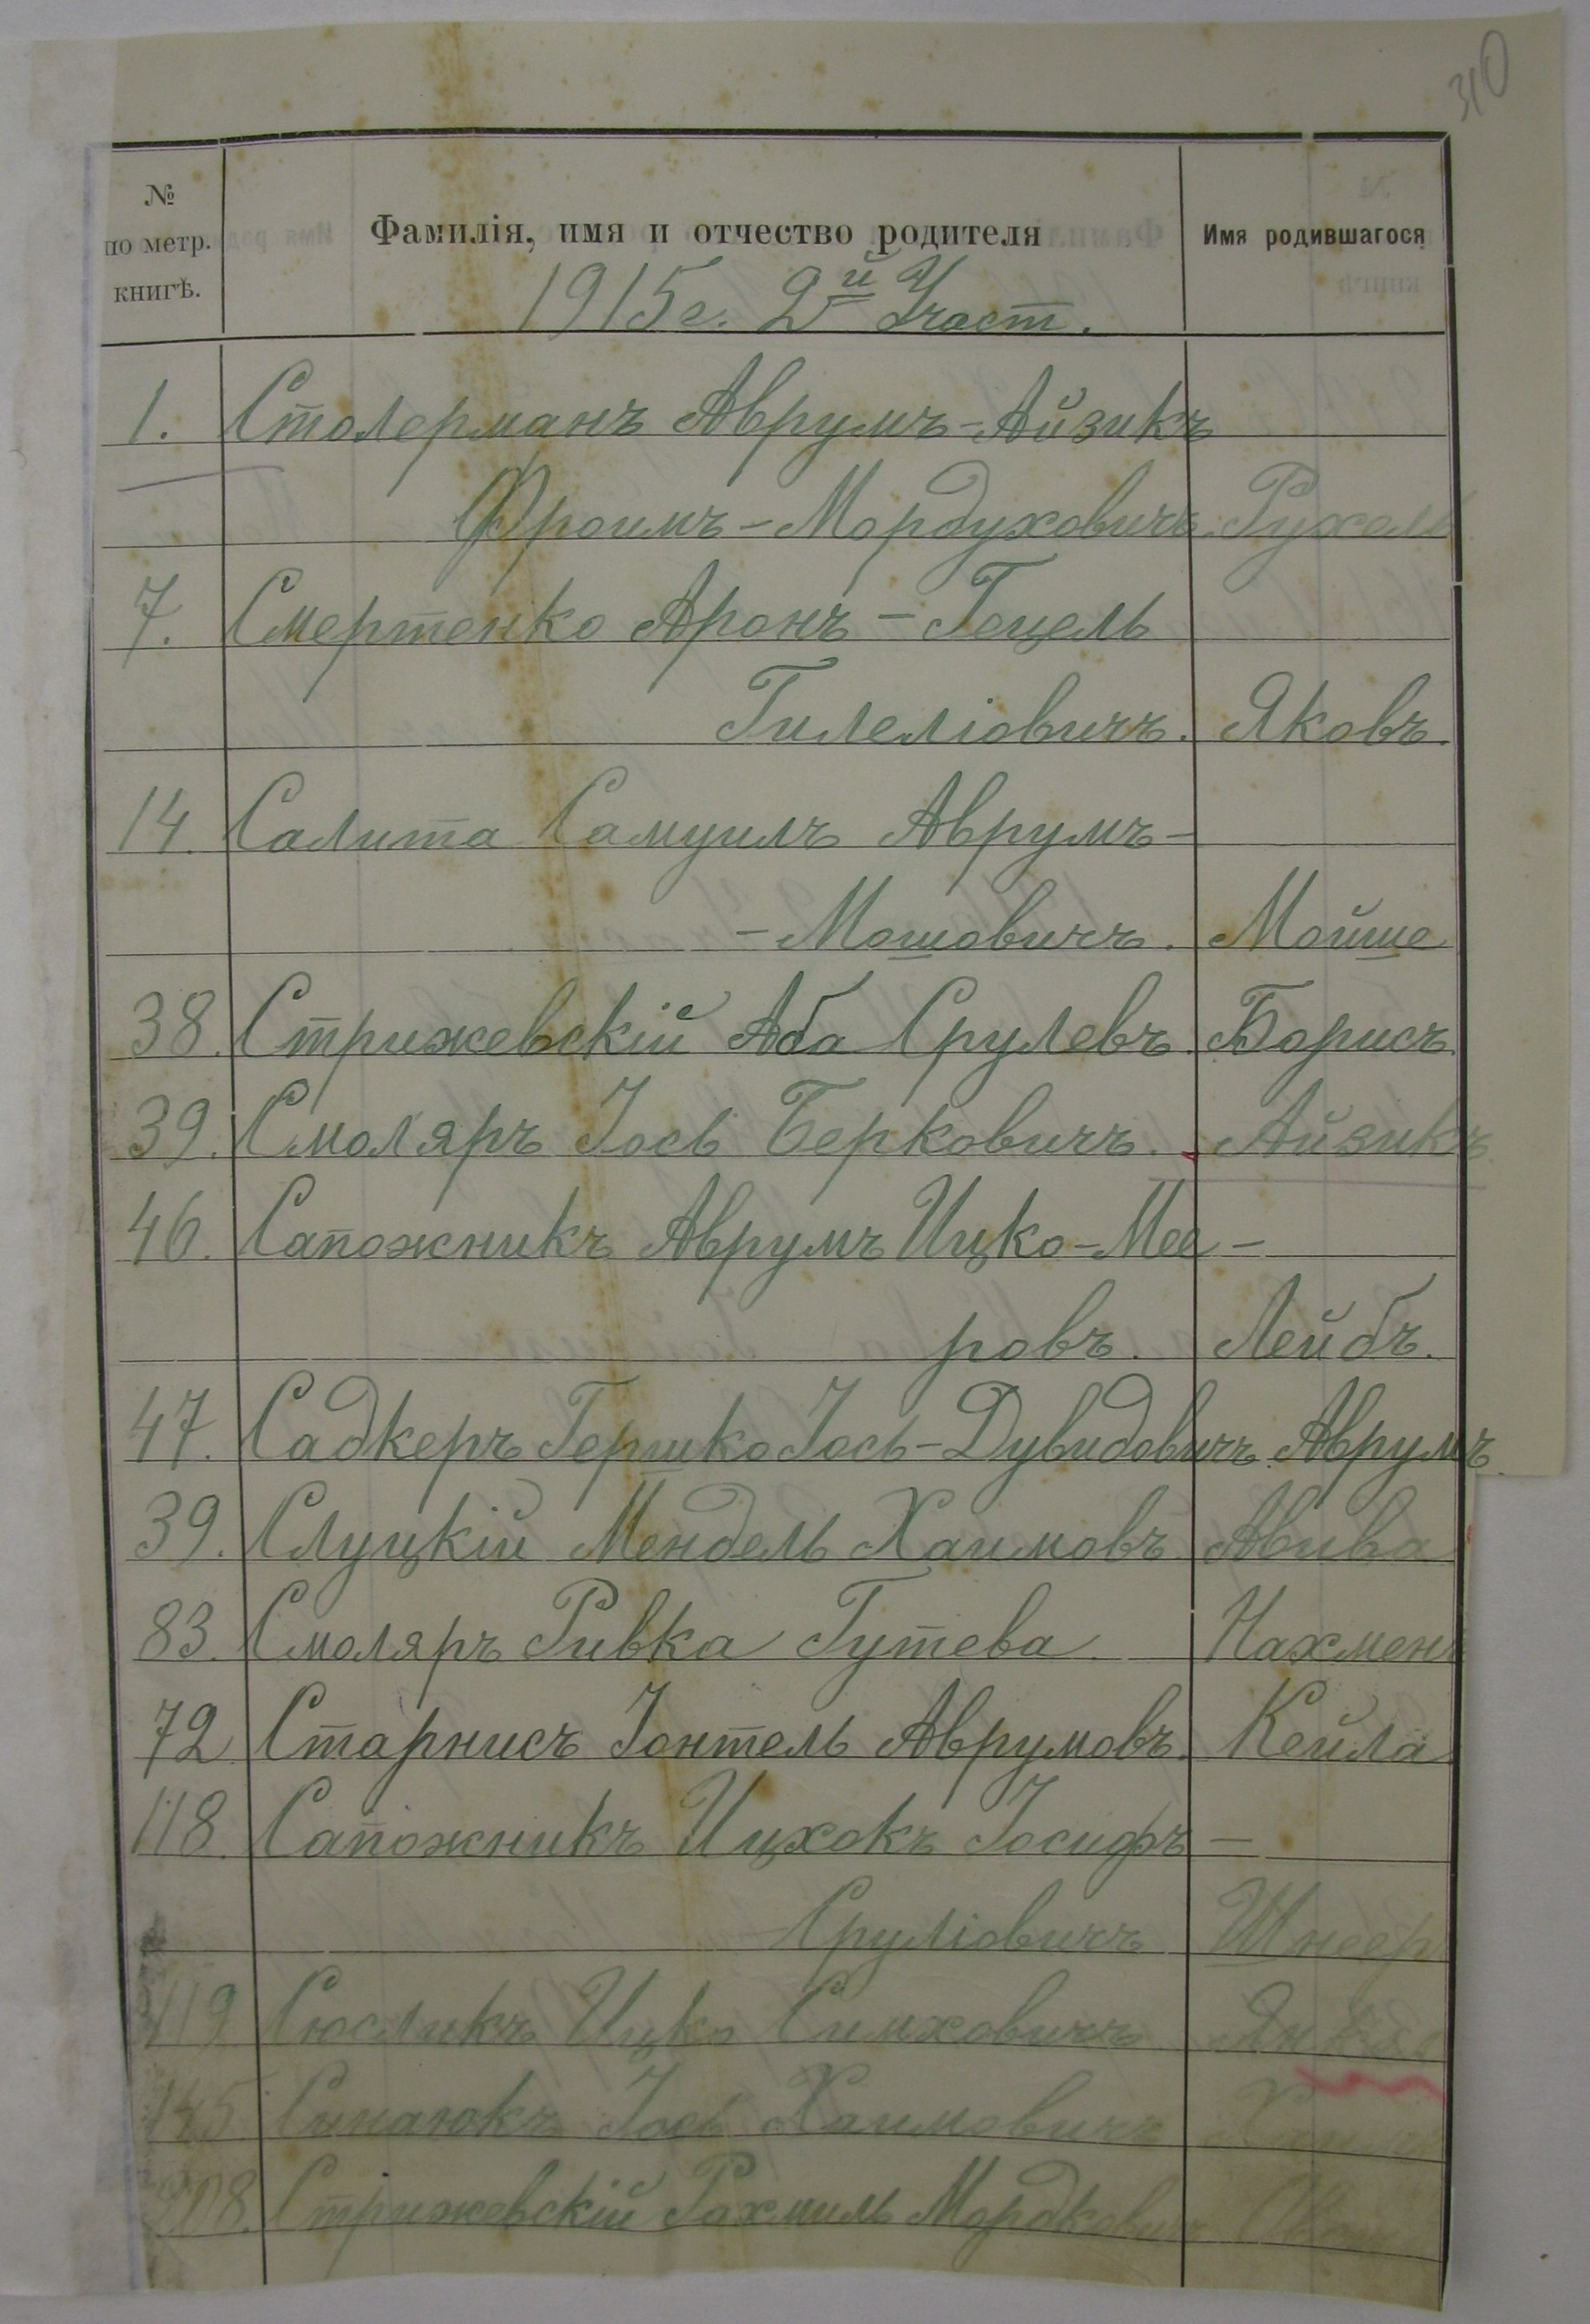 310
№
по метр.
книгѣ.
Фамилія, имя и отчество родителя
Имя родившагося
1915г. 2й Участ.
1. Столерманъ Аврумъ-Айзикъ
Фроимъ-Мордуховичъ. Рухаль
7. Смертенко Аронъ-Гецель
Гилеліовичъ. Яковъ.
14. Салита Самуилъ Аврумъ-
-Мошовичъ. Мойше
38. Стрижевскій Аба Срулевъ. Борисъ.
39. Смоляръ Іось Берковичъ. Айзикъ
46. Сапожникъ Аврумъ Ицко-Мее-
ровъ. Лейбъ.
47. Садкеръ Гершко Іось-Дувидовичъ Аврумъ
39. Слуцкій Мендель Хаимовъ. Авива
83. Смоляръ Ривка Гутева. Нахмень
72 Старнисъ Іонтель Аврумовъ. Кейла
118. Сапожникъ Ицхокъ Іосифъ-
Сруліовичъ Шнеер
119 Сюсликъ Ицко Симховичъ
145. Іось Хаимовичъ
208. Стрижевскій Рахмиль Мордковичъ